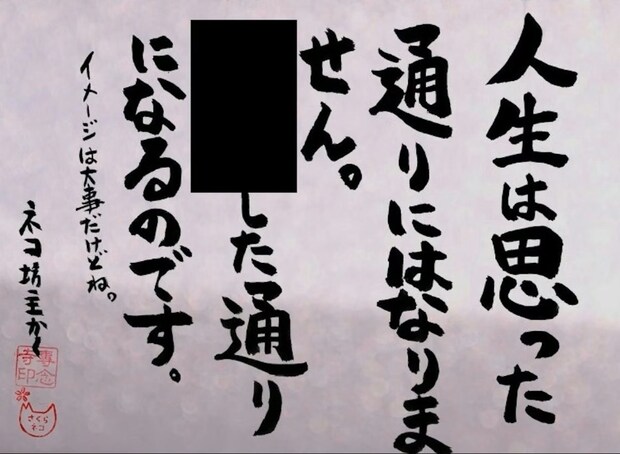 人生は思った
通りにはなりま
せん。
した通り
になるのです。
イメージは大事だけどね。
ネコ坊主かく
専念
寺印
さくら
ネコ